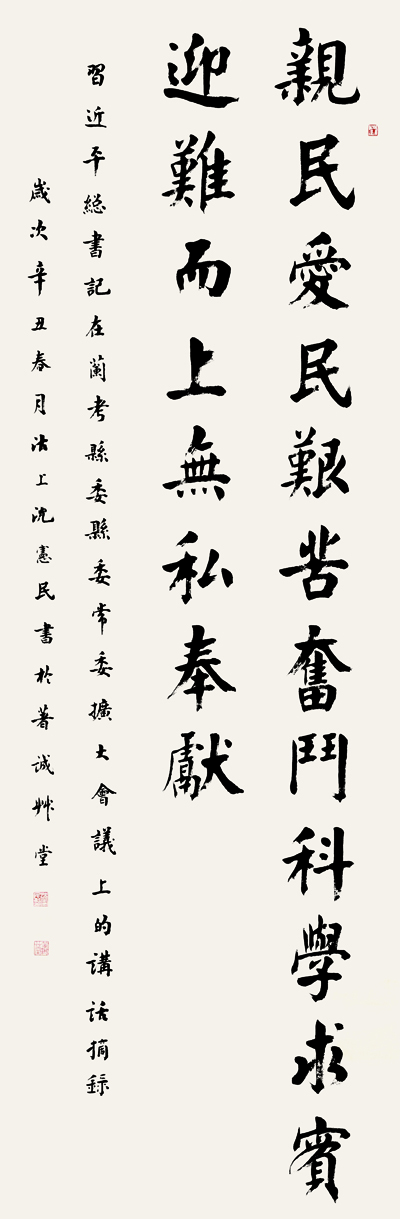 親民愛民艱苦奮鬥科學求實
迎難而上無私奉獻
習近平總書記在蘭考縣委縣委常委擴大會議上的講話摘錄
歲次辛丑春月沽上沈憲民書於著誠艸堂